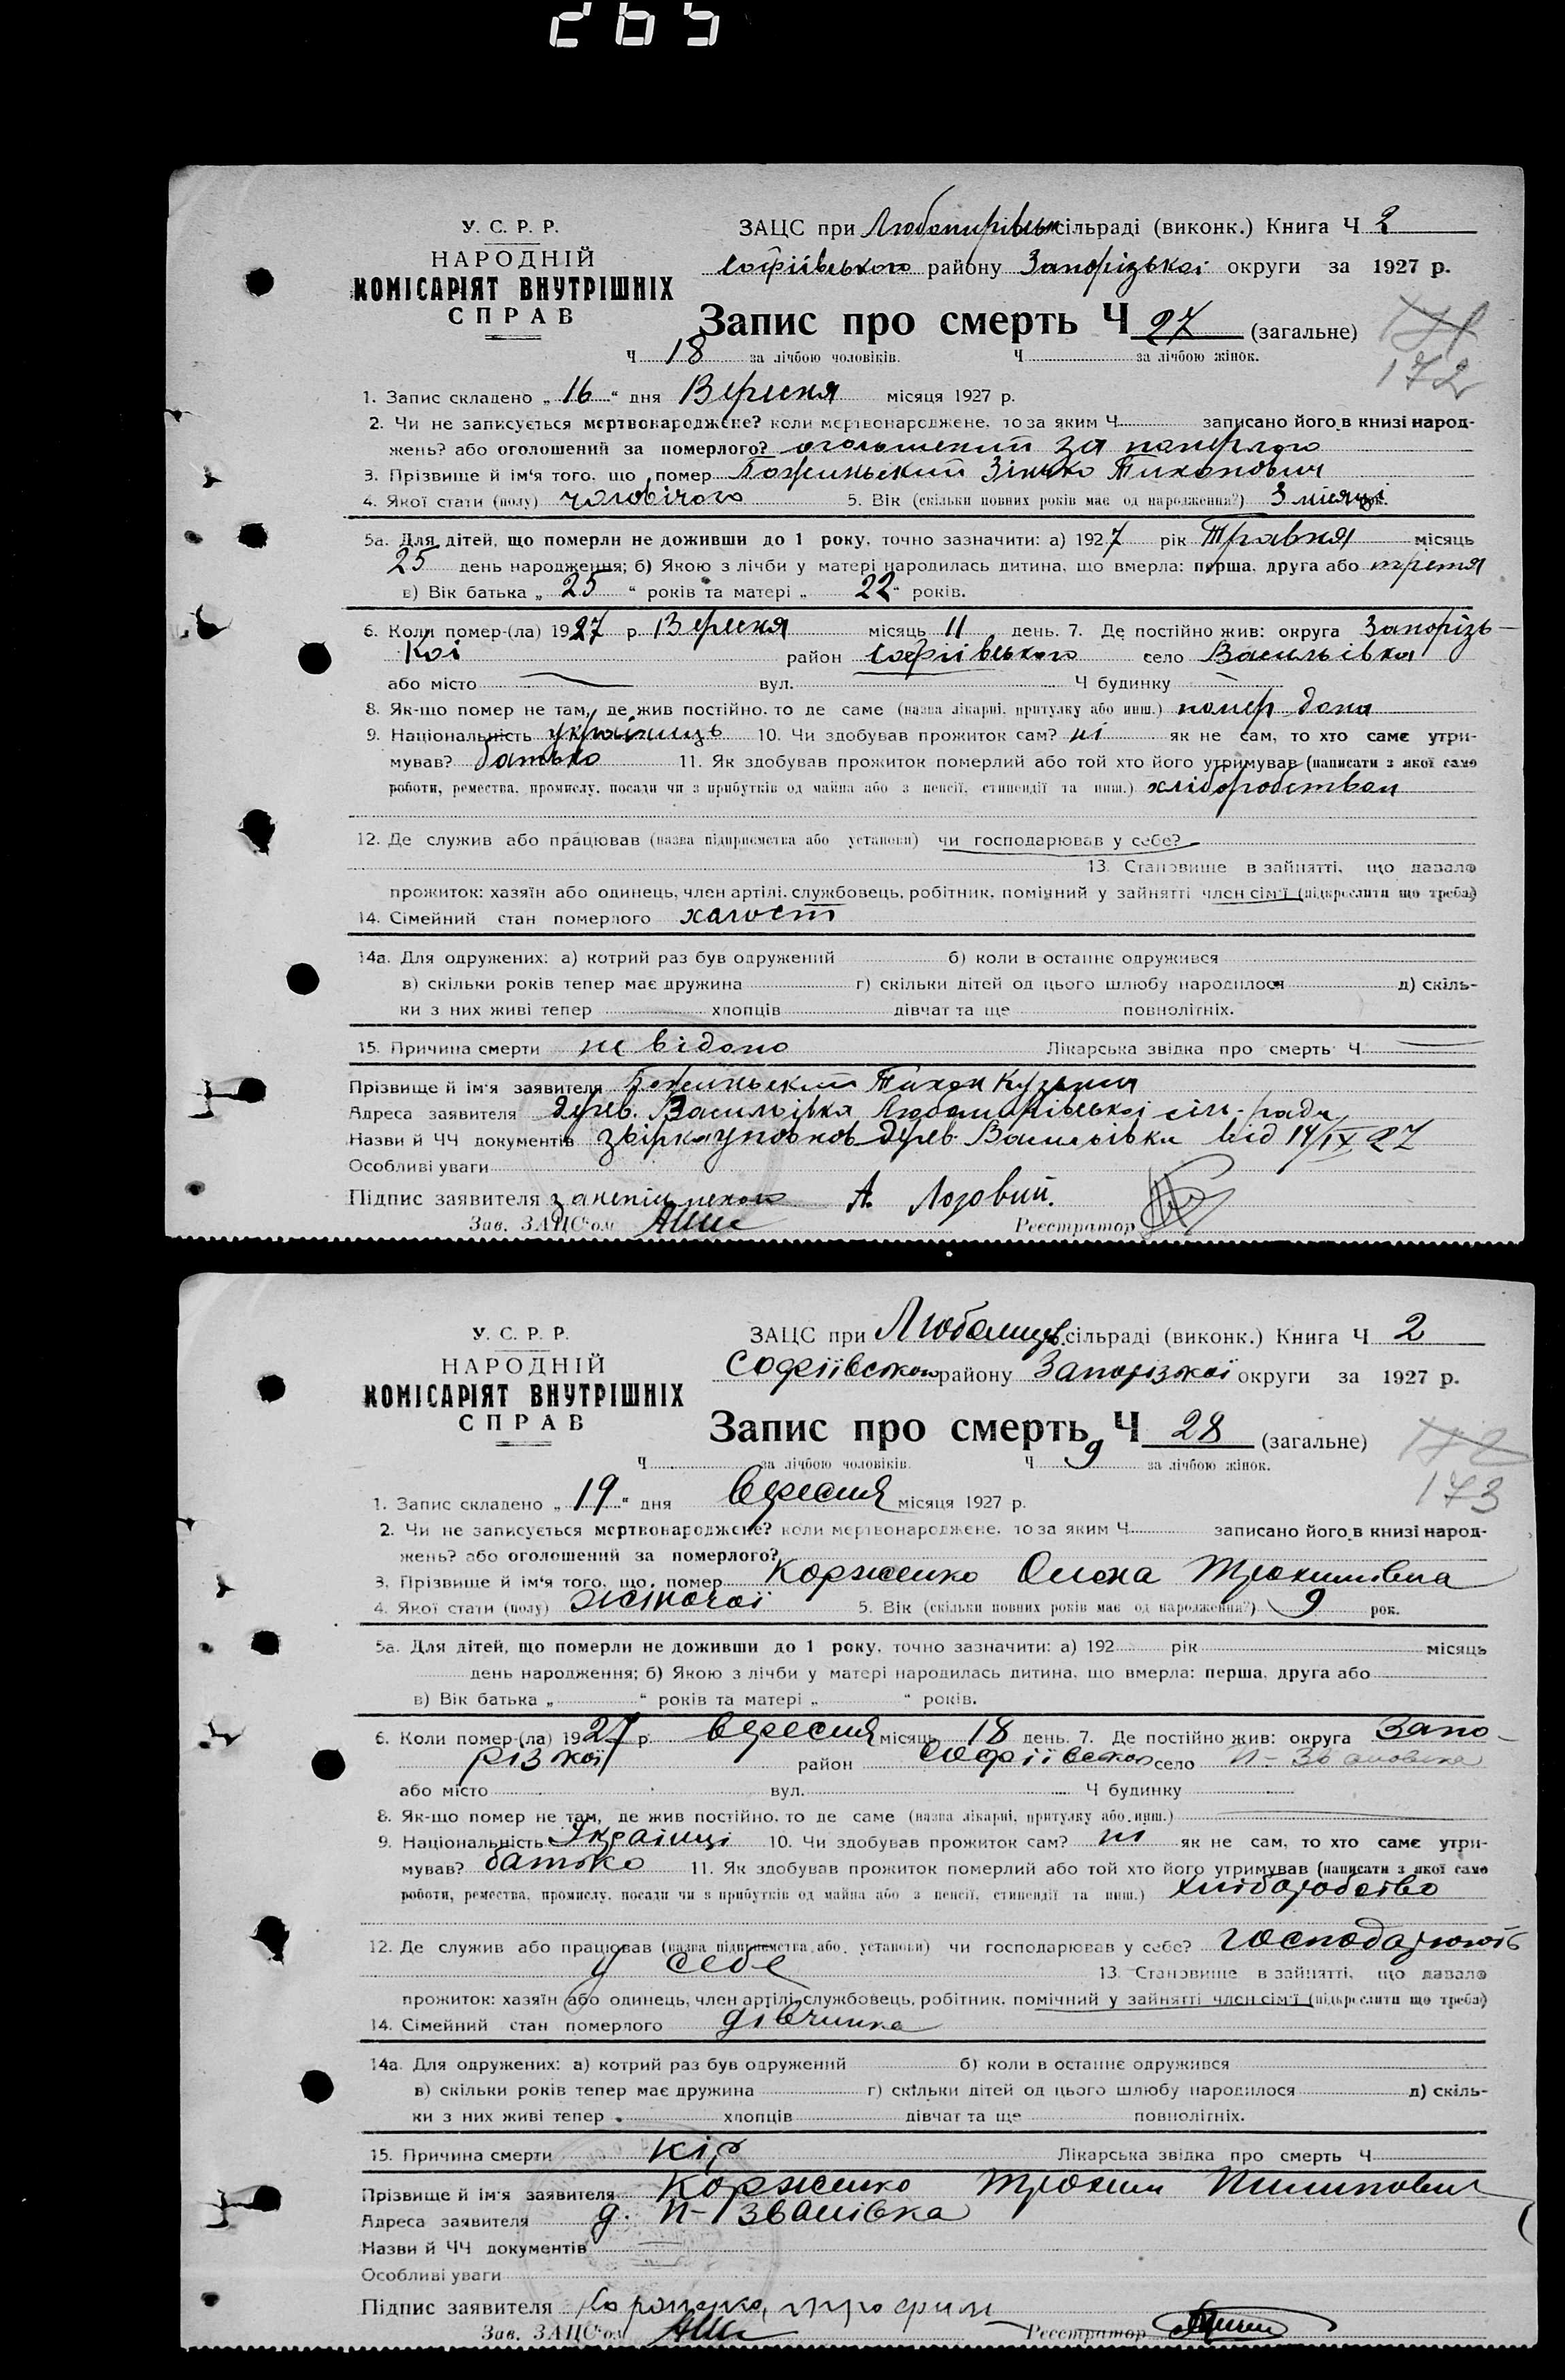 265
У. С. Р. Р.
НАРОДНІЙ
КОМІСАРІЯТ ВНУТРІШНІХ
СПРАВ
ЗАЦС при Любомирівськ сільраді (виконк.) Книга Ч 2
Софіївського району Запорізької округи за 1927 р.
Запис про смерть Ч 27 (загальне)
171
172
Ч 18 за лічбою чоловіків. Ч за лічбою жінок.
1. Запис складено „ 16 “ дня Вересня місяця 1927 р.
2. Чи не записується мертвонароджене? коли мертвонароджене, то за яким Ч записано його в книзі народ-
жень? або оголошений за померлого? оголошений за померлого
3. Прізвище й ім'я того, що помер Божиньский Зінько Тихонович
4. Якої стати (полу) чоловічого 5. Вік (скільки повних років має од народження?) 3 місяці рок.
5а. Для дітей, що померли не доживши до 1 року, точно зазначити: а) 1927 рік Травня місяць
25 день народження; б) Якою з лічби у матері народилась дитина, що вмерла: перша, друга або третя
в) Вік батька „ 25 “ років та матері „ 22 “ років.
6. Коли помер-(ла) 1927 р. Вересня місяць 11 день. 7. Де постійно жив: округа Запорізь-
кої район Софіївського село Васильівка
або місто вул. Ч будинку
8. Як-що помер не там, де жив постійно, то де саме (назва лікарні, притулку або инш.) помер дома
9. Національність українець 10. Чи здобував прожиток сам? ні як не сам, то хто саме утри-
мував? батько 11. Як здобував прожиток померлий або той хто його утримував (написати з якої само
роботи, ремества, промислу, посади чи з прибутків од майна або з пенсії, стипендії та инш.) хліборобством
12. Де служив або працював (назва підприємства або установи) чи господарював у себе?
13. Становище в зайнятті, що давало
прожиток: хазяїн або одинець, член артілі, службовець, робітник, помічний у зайнятті член сім'ї (підкреслити що треба)
14. Сімейний стан померлого холост
14а. Для одружених: а) котрий раз був одружений б) коли в останнє одружився
в) скільки років тепер має дружина г) скільки дітей од цього шлюбу народилося д) скіль-
ки з них живі тепер хлопців дівчат та ще повнолітніх.
15. Причина смерти не відомо Лікарська звідка про смерть Ч
Прізвище й ім'я заявителя Божиньский Тихон Кузьмич
Адреса заявителя дерев. Васильівка Любомирівської сіль-ради
Назви й ЧЧ документів дерев. Васильівки від 14/IX 27
Особливі уваги
Підпис заявителя за А. Лозовий.
Зав. ЗАЦС'ом Реєстратор
У. С. Р. Р.
НАРОДНІЙ
КОМІСАРІЯТ ВНУТРІШНІХ
СПРАВ
ЗАЦС при Любомирів. сільраді (виконк.) Книга Ч 2
Софіівского району Запорізкої округи за 1927 р.
Запис про смерть Ч 28 (загальне)
172
173
Ч за лічбою чоловіків. Ч 9 за лічбою жінок.
1. Запис складено „ 19 “ дня вересня місяця 1927 р.
2. Чи не записується мертвонароджене? коли мертвонароджене, то за яким Ч записано його в книзі народ-
жень? або оголошений за померлого?
3. Прізвище й ім'я того, що помер Корженко Олена Трохимівна
4. Якої стати (полу) жіночої 5. Вік (скільки повних років має од народження?) 9 рок.
5а. Для дітей, що померли не доживши до 1 року, точно зазначити: а) 192 рік місяць
день народження; б) Якою з лічби у матері народилась дитина, що вмерла: перша, друга або
в) Вік батька „ “ років та матері „ “ років.
6. Коли помер-(ла) 1927 р. вересня місяць 18 день. 7. Де постійно жив: округа Запо-
різкої район Софіівског село
або місто вул. Ч будинку
8. Як-що помер не там, де жив постійно, то де саме (назва лікарні, притулку або инш.)
9. Національність Українці 10. Чи здобував прожиток сам? ні як не сам, то хто саме утри-
мував? батько 11. Як здобував прожиток померлий або той хто його утримував (написати з якої само
роботи, ремества, промислу, посади чи з прибутків од майна або з пенсії, стипендії та инш.) хліборобство
12. Де служив або працював (назва підприємства або установи) чи господарював у себе? господарюють
у себе 13. Становище в зайнятті, що давало
прожиток: хазяїн або одинець, член артілі, службовець, робітник, помічний у зайнятті член сім'ї (підкреслити що треба)
14. Сімейний стан померлого дівчинка
14а. Для одружених: а) котрий раз був одружений б) коли в останнє одружився
в) скільки років тепер має дружина г) скільки дітей од цього шлюбу народилося д) скіль-
ки з них живі тепер хлопців дівчат та ще повнолітніх.
15. Причина смерти кір Лікарська звідка про смерть Ч
Прізвище й ім'я заявителя Корженко Трохим Пилипович
Адреса заявителя д. П-Званівка
Назви й ЧЧ документів
Особливі уваги
Підпис заявителя
Зав. ЗАЦС'ом Реєстратор